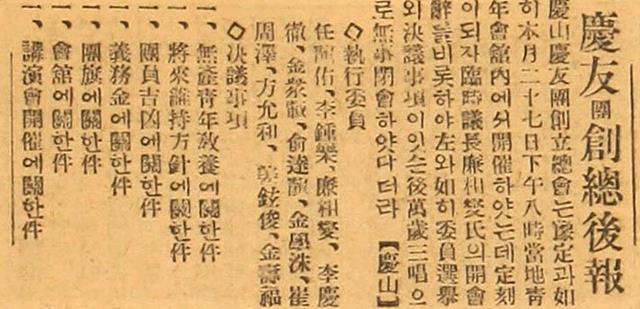 慶友團創總後報
慶山慶友團創立總會는豫定과如
히本月二十七日下午八時當地靑
年會館內에서開催하얏는데定刻
이되자臨時議長廉相燮氏의開會
辭를비롯하야左와如히委員選擧
와決議事項이잇슨後萬歲三唱으
로無事閉會하얏다더라【慶山】
◇執行委員
任 佑、李鍾樂、廉相燮、李慶
徹、金象 、兪達 、金 洙、崔
周澤、方允和、 鉉俊、金壽福
◇決議事項
一、無產靑年敎養에關한件
一、將來維持方針에關한件
一、團員吉凶에關한件
一、義務金에關한件
一、團旗에關한件
一、會館에關한件
一、講演會開催에關한件